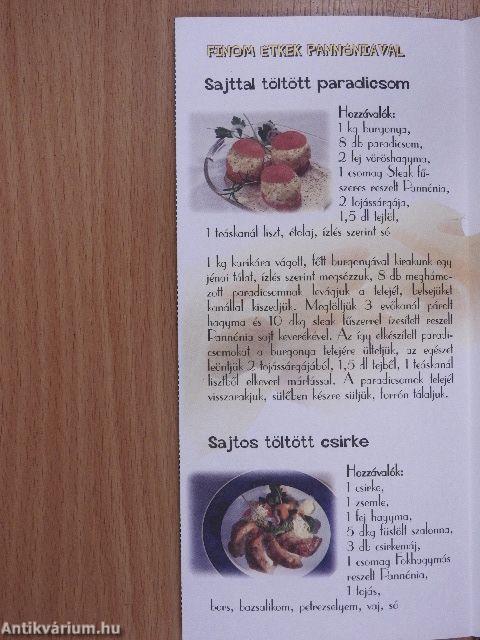 FINOM ÉTKEK PANNÓNIÁVAL
Sajttal töltött paradicsom
Hozzávalók:
1 kg burgonya,
8 db paradicsom,
2 fej vöröshagyma,
1 csomag Steak fű-
szeres reszelt Pannónia,
2 tojássárgája,
1,5 dl tejföl,
1 teáskanál liszt, étolaj, ízlés szerint só
1 kg karikára vágott, főtt burgonyával kirakunk egy
jénai tálat, ízlés szerint megsózzuk, 8 db meghámo-
zott paradicsomnak levágjuk a tetejét, belsejüket
kanállal kiszedjük. Megtöltjük 3 evőkanál párolt
hagyma és 10 dkg steak fűszerrel ízesített reszelt
Pannónia sajt keverékével. Az így elkészített paradi-
csomokat a burgonya tetejére ültetjük, az egészet
leöntjük 2 tojássárgájából, 1,5 dl tejből, 1 teáskanál
lisztből elkevert mártással. A paradicsomok tetejét
visszarakjuk, sütőben készre sütjük, forrón tálaljuk.
Sajtos töltött csirke
Hozzávalók:
1 csirke,
1 zsemle,
1 fej hagyma,
5 dkg füstölt szalonna,
3 db csirkemáj,
1 csomag Fokhagymás
reszelt Pannónia,
1 tojás,
bors, bazsalikom, petrezselyem, vaj, só
Antikvárium.hu